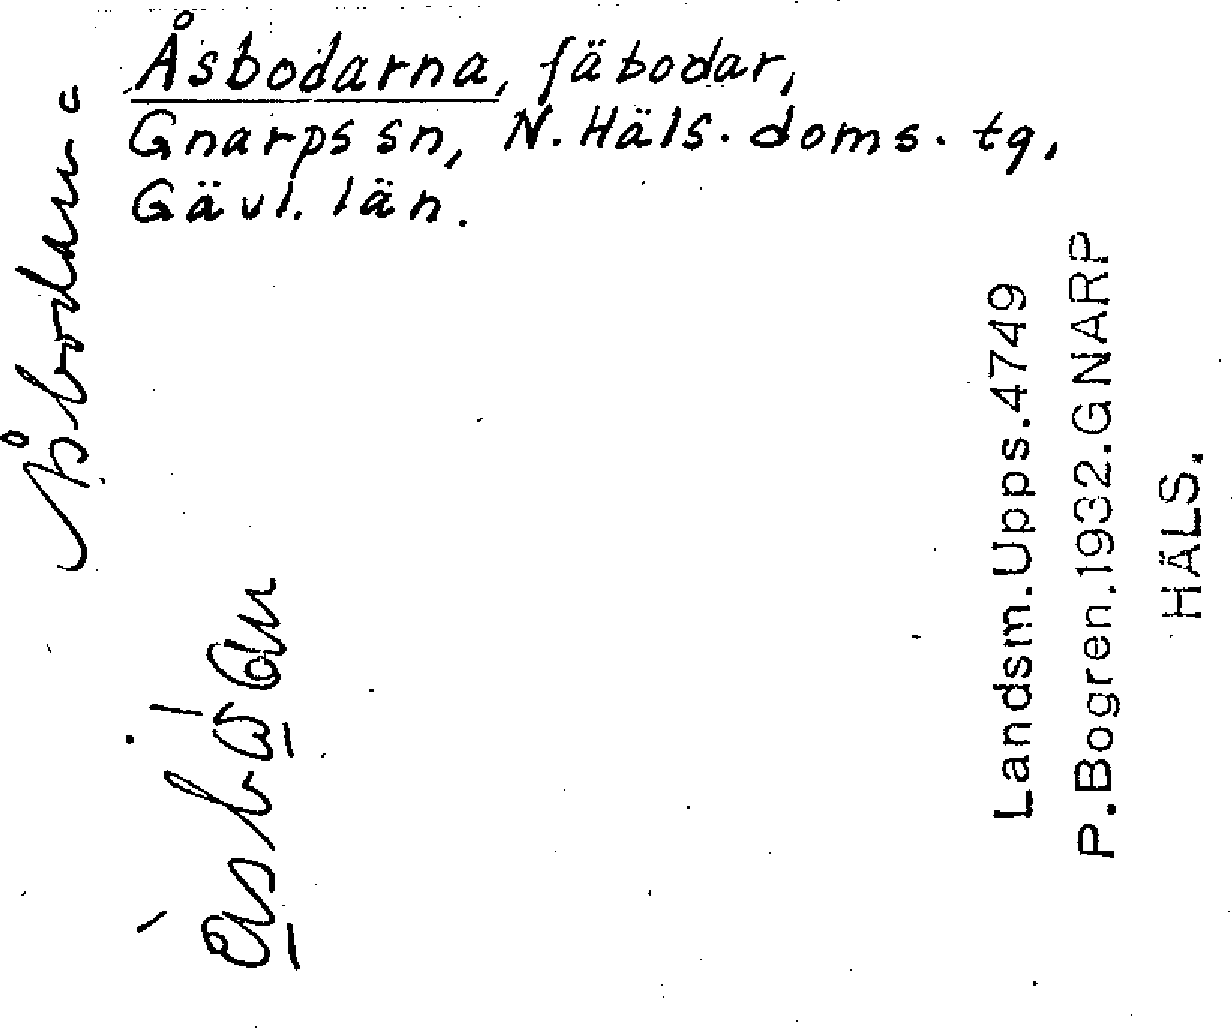 Åsbodarna, fäbodar,
Gnarps sn, N. Häls. doms. tg,
Gävl. län.
Landsm. Upps. 4749
P. Bogren. 1932. GNARP
HÄLS.